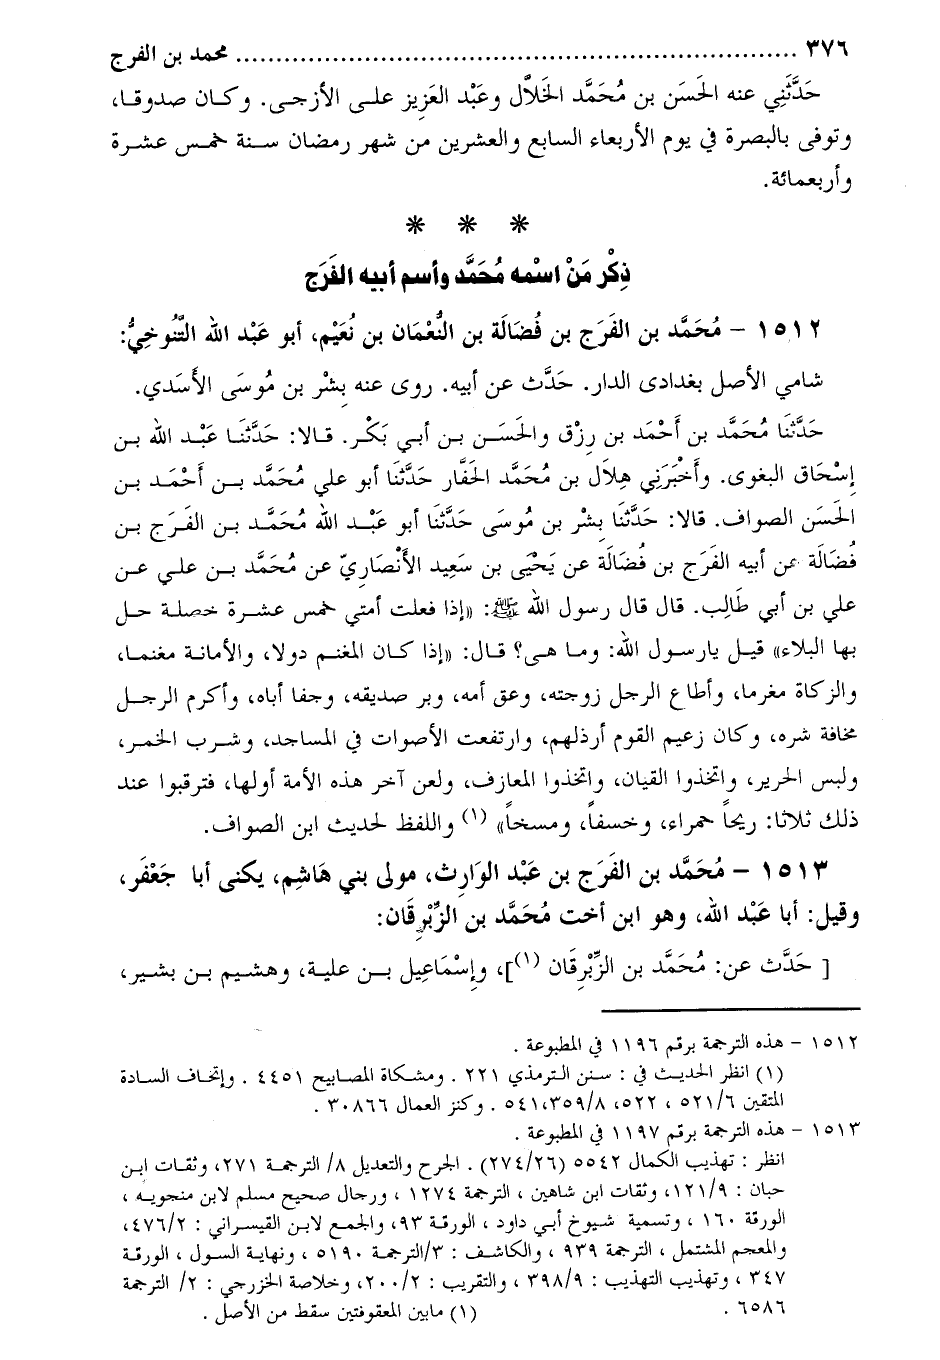 ٣٧٦ ........................................................................ محمد بن الفرج
حَدَّثَنِي عنه الحَسَن بن مُحَمَّد الخَلاَّل وعَبْد العَزِيز على الأزجى. وكان صدوقا،
وتوفى بالبصرة في يوم الأربعاء السابع والعشرين من شهر رمضان سنة خمس عشرة
وأربعمائة.
* * *
ذِكْر مَنْ اسْمه مُحَمَّد وأسم أبيه الفَرَج
١٥١٢ - مُحَمَّد بن الفَرَج بن فُضَالَة بن النُّعْمَان بن نُعَيْم، أبو عَبْد الله التَّنُوخِيُّ:
شامي الأصل بغدادى الدار. حَدَّث عن أبيه. روى عنه بِشْر بن مُوسَى الأَسَدي.
حَدَّثَنَا مُحَمَّد بن أَحْمَد بن رِزْق والحَسَن بن أبي بَكْر. قالا: حَدَّثَنَا عَبْد الله بن
إِسْحَاق البغوى. وأَخْبَرَنِي هِلاَل بن مُحَمَّد الحَفَّار حَدَّثَنَا أبو علي مُحَمَّد بن أَحْمَد بن
الحَسَن الصواف. قالا: حَدَّثَنَا بِشْر بن مُوسَى حَدَّثَنَا أبو عَبْد الله مُحَمَّد بن الفَرَج بن
فُضَالَة عن أبيه الفَرَج بن فُضَالَة عن يَحْيَى بن سَعِيد الأَنْصَارِيّ عن مُحَمَّد بن علي عن
علي بن أبي طَالِب. قال قال رسول الله ﷺ: «إذا فعلت أمتي خمس عشرة خصلة حل
بها البلاء» قيل يارسول الله: وما هى؟ قال: «إذا كان المغنم دولا، والأمانة مغنما،
والزكاة مغرما، وأطاع الرجل زوجته، وعق أمه، وبر صديقه، وجفا أباه، وأكرم الرجل
مخافة شره، وكان زعيم القوم أرذلهم، وارتفعت الأصوات في المساجد، وشرب الخمر،
ولبس الحرير، واتخذوا القيان، واتخذوا المعازف، ولعن آخر هذه الأمة أولها، فترقبوا عند
ذلك ثلاثا: ريحاً حمراء، وخسفاً، ومسخاً» (١) واللفظ لحديث ابن الصواف.
١٥١٣ - مُحَمَّد بن الفَرَج بن عَبْد الوَارِث، مولى بني هَاشِم، يكنى أبا جَعْفَر،
وقيل: أبا عَبْد الله، وهو ابن أخت مُحَمَّد بن الزِّبْرِقَان:
[ حَدَّث عن: مُحَمَّد بن الزِّبْرِقَان (١)]، وإِسْمَاعِيل بن علية، وهشيم بن بشير،
١٥١٢ - هذه الترجمة برقم ١١٩٦ في المطبوعة .
(١) انظر الحديث في : سنن الترمذي ٢٢١ . ومشكاة المصابيح ٤٤٥١ . وإتحاف السادة
المتقين ٥٢١/٦ ، ٥٢٢، ٥٤١،٣٥٩/٨ . وكنز العمال ٣٠٨٦٦ .
١٥١٣ - هذه الترجمة برقم ١١٩٧ في المطبوعة .
انظر : تهذيب الكمال ٥٥٤٢ (٢٧٤/٢٦) . الجرح والتعديل ٨/ الترجمة ٢٧١، وثقات ابن
حبان : ١٢١/٩، وثقات ابن شاهين ، الترجمة ١٢٧٤ ، ورجال صحيح مسلم لابن منجويه ،
الورقة ١٦٠ ، وتسمية شيوخ أبي داود ، الورقة ٩٣، والجمع لابن القيسراني : ٤٧٦/٢،
والمعجم المشتمل ، الترجمة ٩٣٩ ، والكاشف : ٣/الترجمة ٥١٩٠ ، ونهاية السول ، الورقة
٣٤٧ ، وتهذيب التهذيب : ٣٩٨/٩ ، والتقريب : ٢٠٠/٢، وخلاصة الخزرجي : ٢/ الترجمة
٦٥٨٦ . (١) مابين المعقوفتين سقط من الأصل .